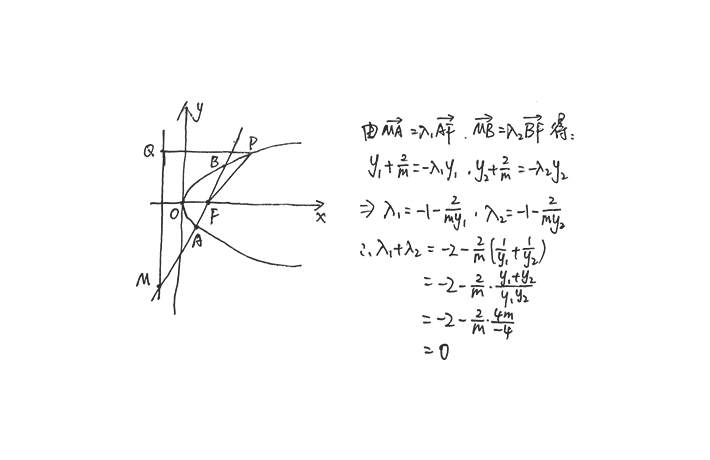 y
Q
P
B
O
F
x
A
M
由 $\overrightarrow{MA}=\lambda_1\overrightarrow{AF}$ . $\overrightarrow{MB}=\lambda_2\overrightarrow{BF}$ 得:
$y_1+\frac{2}{m}=-\lambda_1y_1$ , $y_2+\frac{2}{m}=-\lambda_2y_2$
$\Rightarrow \lambda_1=-1-\frac{2}{my_1}$ , $\lambda_2=-1-\frac{2}{my_2}$
$\therefore \lambda_1+\lambda_2=-2-\frac{2}{m}\left(\frac{1}{y_1}+\frac{1}{y_2}\right)$
$=-2-\frac{2}{m}\cdot\frac{y_1+y_2}{y_1y_2}$
$=-2-\frac{2}{m}\cdot\frac{4m}{-4}$
$=0$